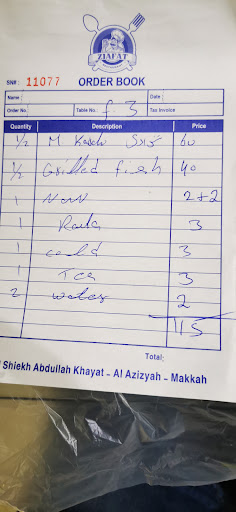 ZIAFAT
SN#: 11077 ORDER BOOK
Name: Date:
Order No. Table No. F-3 Tax Invoice
Quantity Description Price
1/2 M. 60
1/2 Grilled fish 40
1 Nan 2+2
1 Raita 3
1 could 3
1 Tea 3
2 water 2
115
Total:
Shiekh Abdullah Khayat - Al Azizyah - Makkah